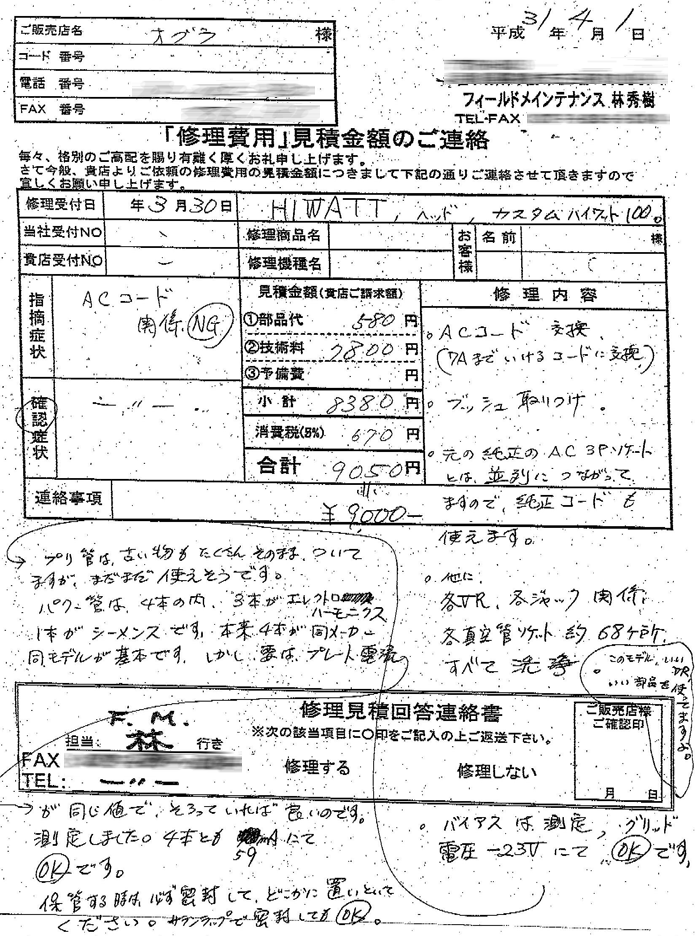 ご販売店名 オグラ 様
コード 番号
電話 番号
FAX 番号
平成 31 年 4 月 1 日
フィールドメインテナンス 林秀樹
TEL・FAX
「修理費用」見積金額のご連絡
毎々、格別のご高配を賜り有難く厚くお礼申し上げます。
さて今般、貴店よりご依頼の修理費用の見積金額につきまして下記の通りご連絡させて頂きますので
宜しくお願い申し上げます。
修理受付日 年 3 月 30 日 HIWATT, ヘッド, カスタムハイワット100。
当社受付NO 修理商品名 お客様 名前 様
貴店受付NO 修理機種名
指摘症状 ACコード
関係 NG
確認症状 〃
見積金額(貴店ご請求額)
①部品代 580 円
②技術料 7800 円
③予備費 円
小計 8380 円
消費税(8%) 670 円
合計 9050 円
修理内容
。ACコード 交換
(7Aまでいけるコードに交換)
。ブッシュ取りつけ.
。元の純正のAC 3Pソケット
とは、並列につながって
ますので、純正コードも
使えます。
連絡事項 ¥9000-
プリ管は、古い物もたくさんそのまま、ついて
ますが、まだまだ使えそうです。
パワー管は、4本の内、3本がエレクトロ
ハーモニクス
1本がシーメンスです、本来4本が同メーカー
同モデルが基本です、しかし要は、プレート電流
。他に、
各VR、各ジャック関係、
各真空管ソケット約68ヶ所、
すべて洗浄。
このモデル、いい
いい部品を使ってますよ。
F.M.
担当: 林 行き
FAX
TEL: 〃
修理見積回答連絡書
※次の該当項目に〇印をご記入の上ご返送下さい。
修理する 修理しない
ご販売店様
ご確認印
月 日
が同じ値で、そろっていれば良いのです。
測定しました。4本とも mAにて
59
OKです。
保管する時は、必ず密封して、どこかに置いといて
ください。サランラップで密封してもOK。
。バイアスは測定、グリッド
電圧-23Vにて、OKです,